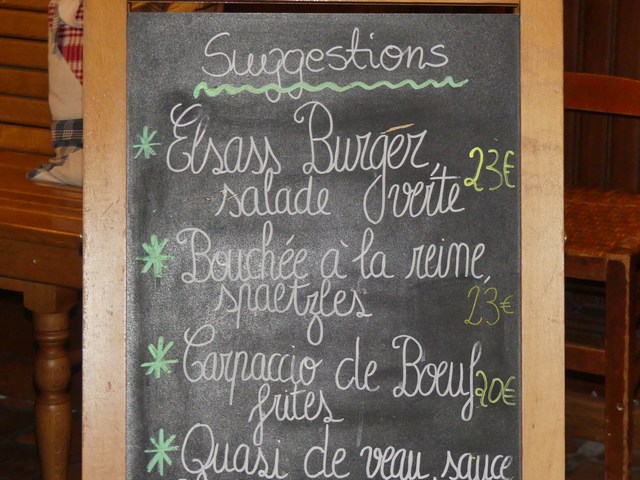 Suggestions
* Elsass Burger,
salade verte 23€
* Bouchée à la reine,
spaetzles 23€
* Carpaccio de Boeuf
frites 20€
* Quasi de veau, sauce